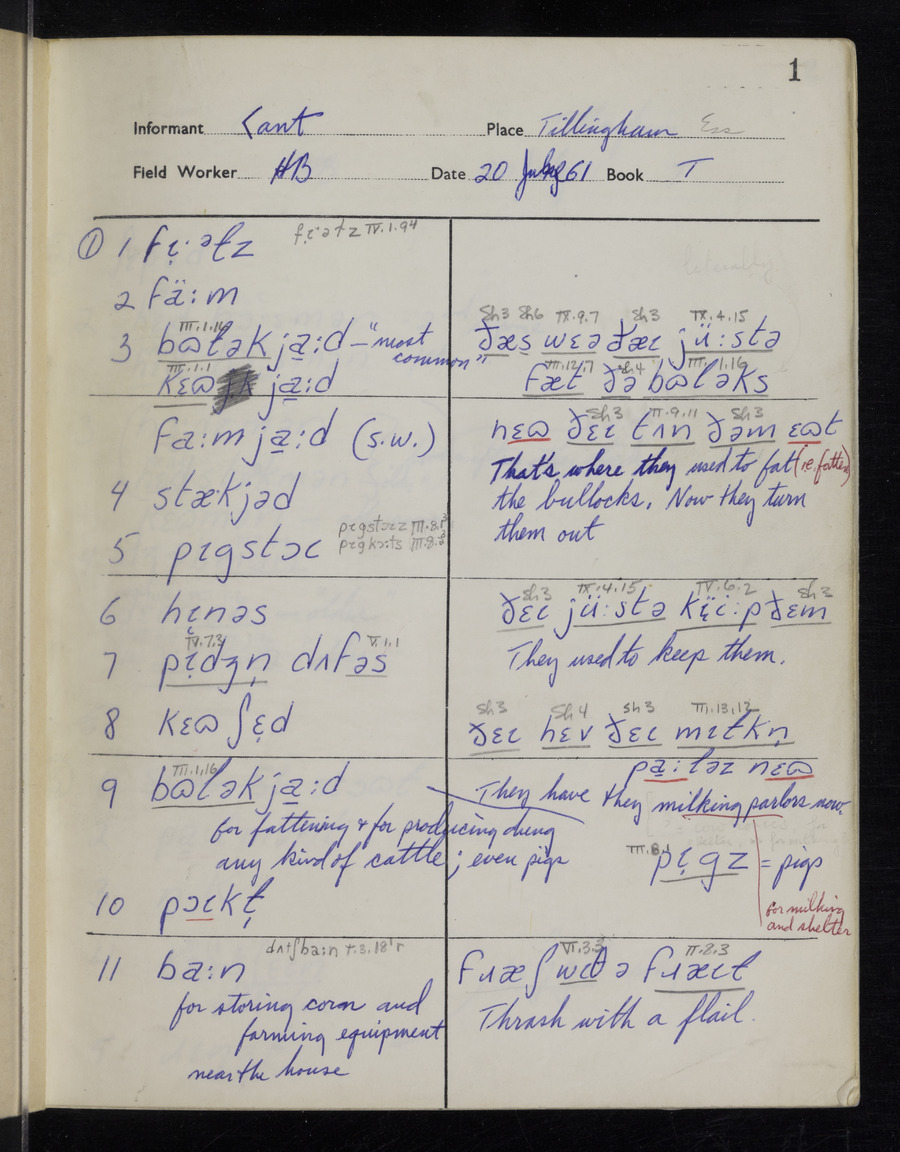 1
Informant Cant Place Tillingham Ess
Field Worker HB Date 20 July 61 Book I
① 1 fɪ̣·əɫz fɪ̣·əɫz IV.1.94
2 fä:m
III.1.16
3 bɷɫək ja̱:d – "most common"
III.1.1
kɛɷ ja̱:d
fa:m ja̱:d (s.w.)
4 stækjəd
5 pɪgstɔɪ pɪgstɔɪz III.8.
pɪgkɔ:ts III.8.
6 hɪnəs
IV.7.3 V.1.1
7 pɪ̣dʒn̩ dʌfəs
8 kɛɷ ʃɛ̣d
III.1.16
9 bɷɫək ja̱:d
for fattening & for producing dung
any kind of cattle; even pigs
10 pɔɪkɫ̩
11 ba:n dʌtʃba:n
for storing corn and
farming equipment
near the house
Sh3 Sh6 IX.9.7 Sh3 IX.4.15
ðæs wɛə ðæɪ jü:stə
III.12.7 Sh4 III.1.16
fæt ðə bɷləks
Sh3 II.9.11 Sh3
nɛɷ ðɛɪ tʌn ðəm ɛɷt
That's where they used to fat (i.e. fatten)
the bullocks. Now they turn
them out
Sh3 IX.4.15 IV.6.2 Sh3
ðɛɪ jü:stə kɪ̈i:p ðɛm
They used to keep them.
Sh3 Sh4 Sh3 III.13.12
ðɛɪ hɛv ðɛɪ mɪɫkn̩
pa̱:ləz nɛɷ
They have they milking parlors now
III.8.1
pɪ̣gz = pigs
for milking
and shelter
VI.3.3 II.8.3
fɹæʃ wɪð ə fɹæɪɫ
Thrash with a flail.